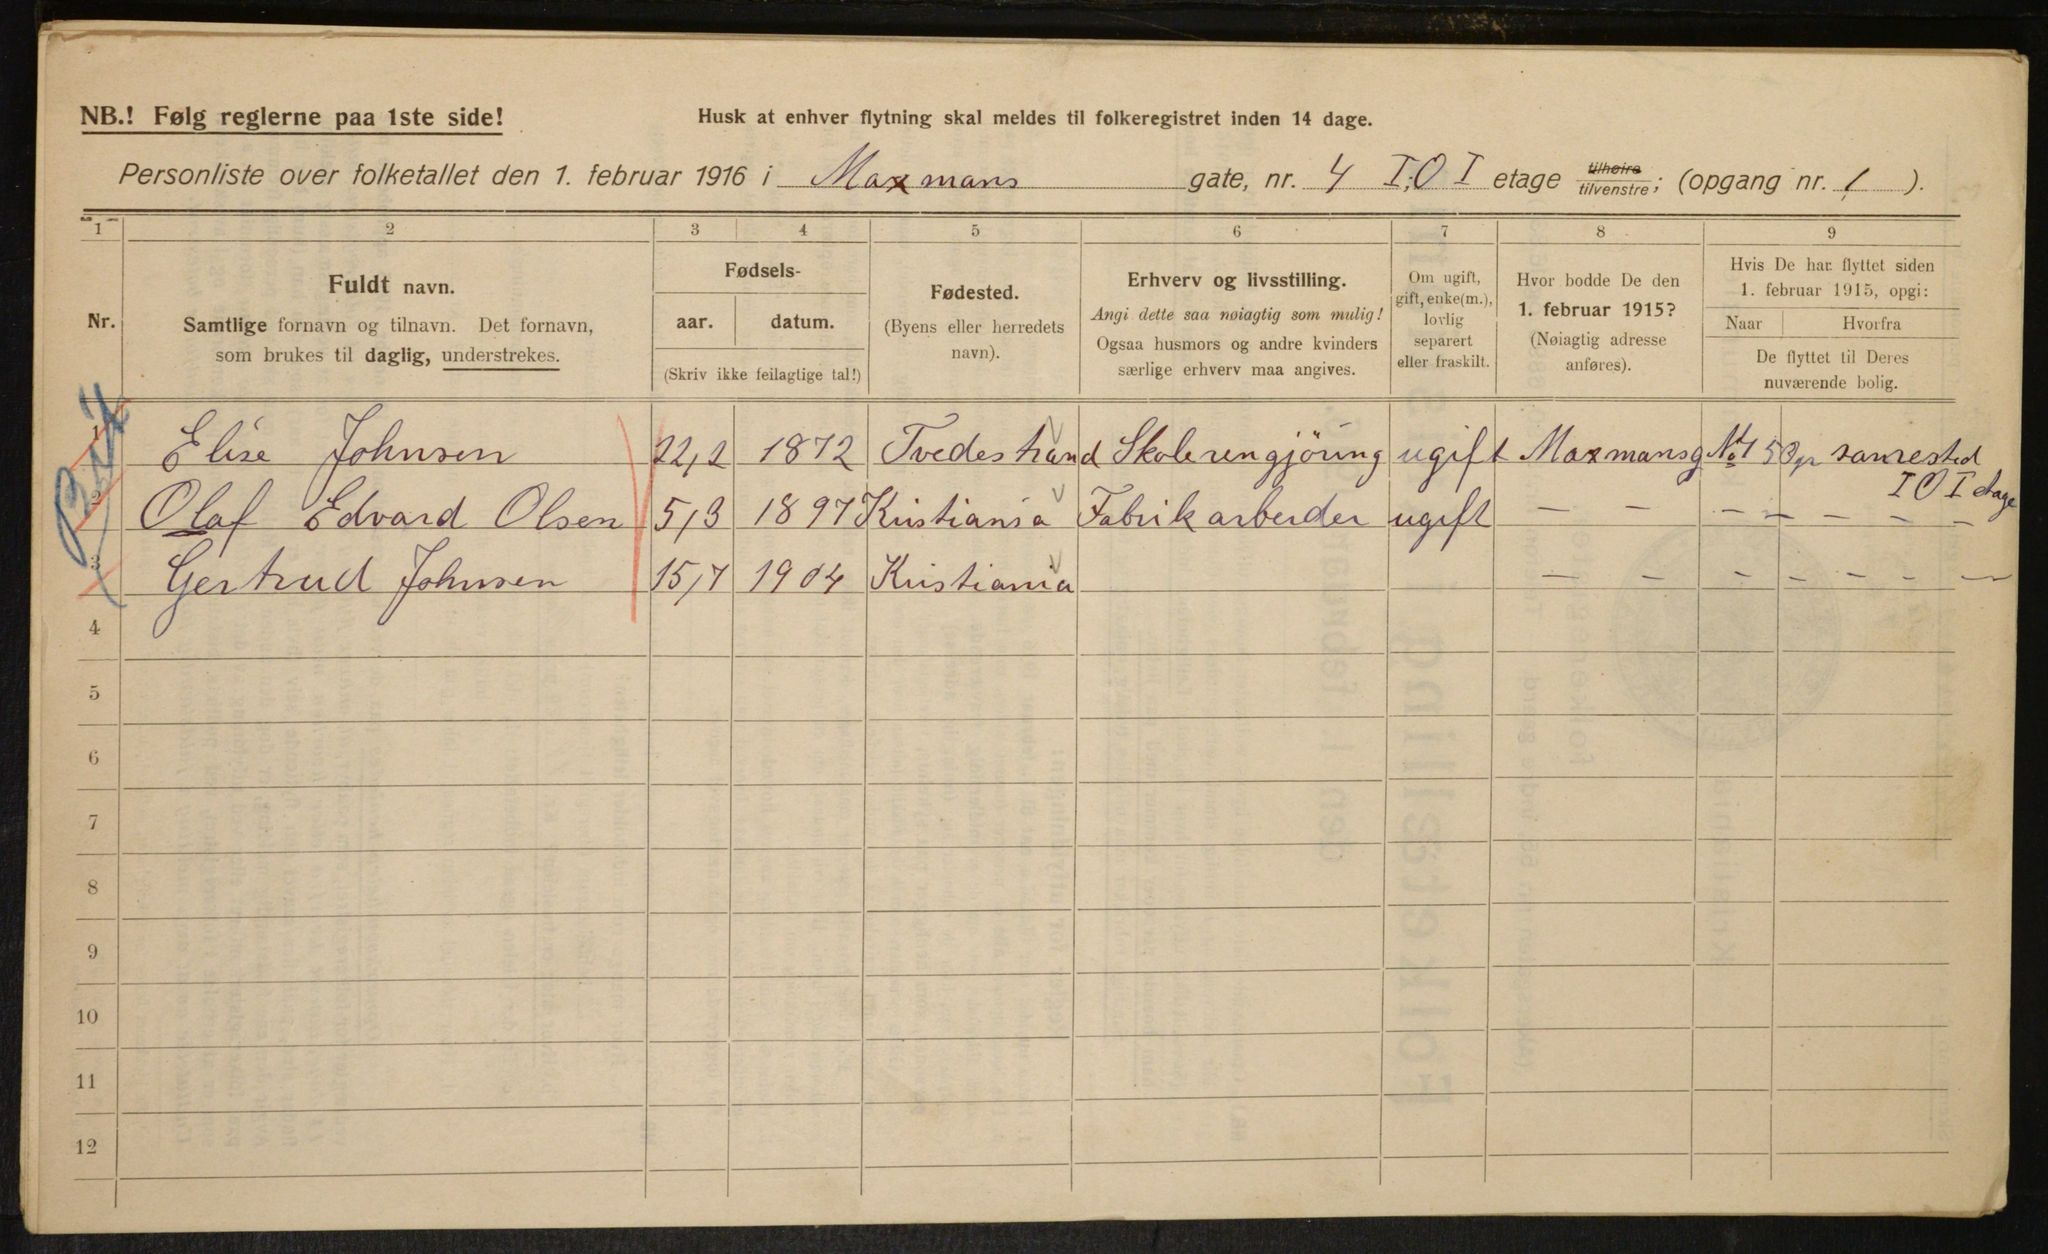 NB.! Følg reglerne paa 1ste side!
Husk at enhver flytning skal meldes til folkeregistret inden 14 dage.
Personliste over folketallet den 1. februar 1916 i Maxmans gate, nr. 4 I,O I etage tilhøire tilvenstre; (opgang nr. 1 ).
1 2 3 4 5 6 7 8 9
Nr.
Fuldt navn.
Samtlige fornavn og tilnavn. Det fornavn,
som brukes til daglig, understrekes.
Fødsels-
aar. datum.
(Skriv ikke feilagtige tal!)
Fødested.
(Byens eller herredets
navn).
Erhverv og livsstilling.
Angi dette saa nøiagtig som mulig!
Ogsaa husmors og andre kvinders
særlige erhverv maa angives.
Om ugift,
gift, enke(m.),
lovlig
separert
eller fraskilt.
Hvor bodde De den
1. februar 1915?
(Nøiagtig adresse
anføres).
Hvis De har flyttet siden
1. februar 1915, opgi:
Naar Hvorfra
De flyttet til Deres
nuværende bolig.
1 Elise Johnsen 22,2 1872 Tvedestrand Skolerengjöring ugift Maxmansg samested
I O I etage
2 Olaf Edvard Olsen 5,3 1897 Kristiania Fabrikarbeider ugift — — — — — — —
3 Gertrud Johnsen 15,7 1904 Kristiania — — — — — — —
4
5
6
7
8
9
10
11
12